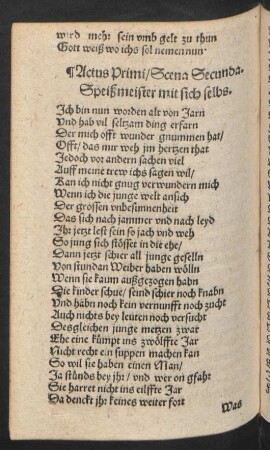 wird mehr sein vmb gelt zu thun
Gott weiß wo ichs sol nemen nun.
¶ Actus Primi / Scena Secunda.
Speißmeister mit sich selbs.
Ich bin nun worden alt von Jarn
Vnd hab vil seltzam ding erfarn
Der mich offt wunder gnummen hat /
Offt / das mir weh jm hertzen that
Jedoch vor andern sachen viel
Auff meine trew ichs sagen wil /
Kan ich nicht gnug verwundern mich
Wenn ich die junge welt ansich
Der grossen vnbesinnenheit
Das sich nach jammer vnd nach leyd
Ihr jetzt lest sein so jach vnd weh
So jung sich stösset in die ehe /
Dann jetzt schier all junge gselln
Von stundan Weiber haben wölln
Wenn sie kaum außgezogen habn
Die kinder schue / seind schier noch knabn
Vnd habn noch kein vernunfft noch zucht
Auch nichts bey leuten noch versucht
Desgleichen junge metzen zwar
Ehe eine kümpt ins zwölffte Jar
Nicht recht ein suppen machen kan
So wil sie haben einen Man /
Ja stünds bey jhr / vnd wer on gfahr
Sie harret nicht ins eilffte Jar
Da denckt jhr keines weiter fort
Was